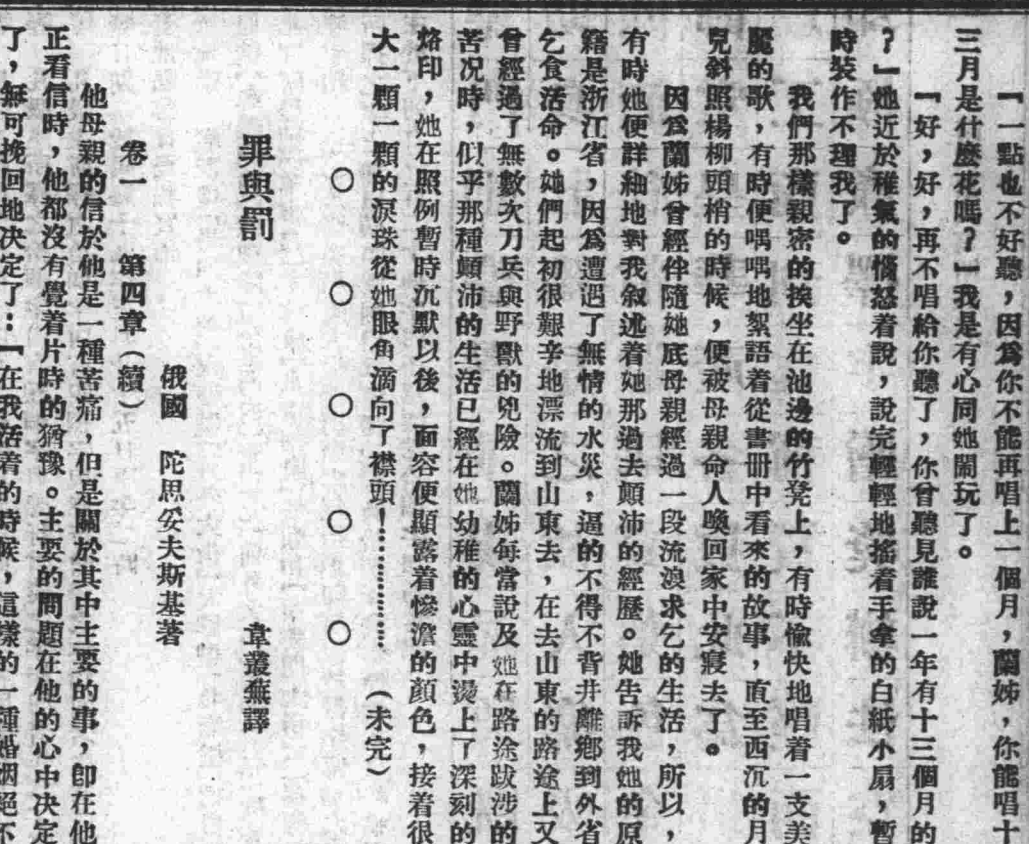 「一點也不好聽，因爲你不能再唱上一個月，蘭姊，你能唱十
三月是什麼花嗎？」我是有心同她鬧玩了。
「好，好，再不唱給你聽了，你曾聽見誰說一年有十三個月的
？」她近於稚氣的惱怒着說，說完輕輕地搖着手拿的白紙小扇，暫
時裝作不理我了。
我們那樣親密的挨坐在池邊的竹凳上，有時愉快地唱着一支美
麗的歌，有時便喁喁地絮語着從書册中看來的故事，直至西沉的月
兒斜照楊柳頭梢的時候，便被母親命人喚回家中安寢去了。
因爲蘭姊曾經伴隨她底母親經過一段流浪求乞的生活，所以，
有時她便詳細地對我叙述着她那過去顛沛的經歷。她告訴我她的原
籍是浙江省，因爲遭遇了無情的水災，逼的不得不背井離鄉到外省
乞食活命。她們起初很艱辛地漂流到山東去，在去山東的路途上又
曾經過了無數次刀兵與野獸的兇險。蘭姊每當說及她在路途跋涉的
苦况時，似乎那種顛沛的生活已經在她幼稚的心靈中燙上了深刻的
烙印，她在照例暫時沉默以後，面容便顯露着慘澹的顏色，接着很
大一顆一顆的淚珠從她眼角滴向了襟頭！…………（未完）
○ ○ ○ ○ ○
罪與罰 韋叢蕪譯
俄國 陀思妥夫斯基著
卷一 第四章（續）
他母親的信於他是一種苦痛，但是關於其中主要的事，卽在他
正看信時，他都沒有覺着片時的猶豫。主要的問題在他的心中决定
了，無可挽回地决定了：「在我活着的時候，這樣的一種婚姻絕不